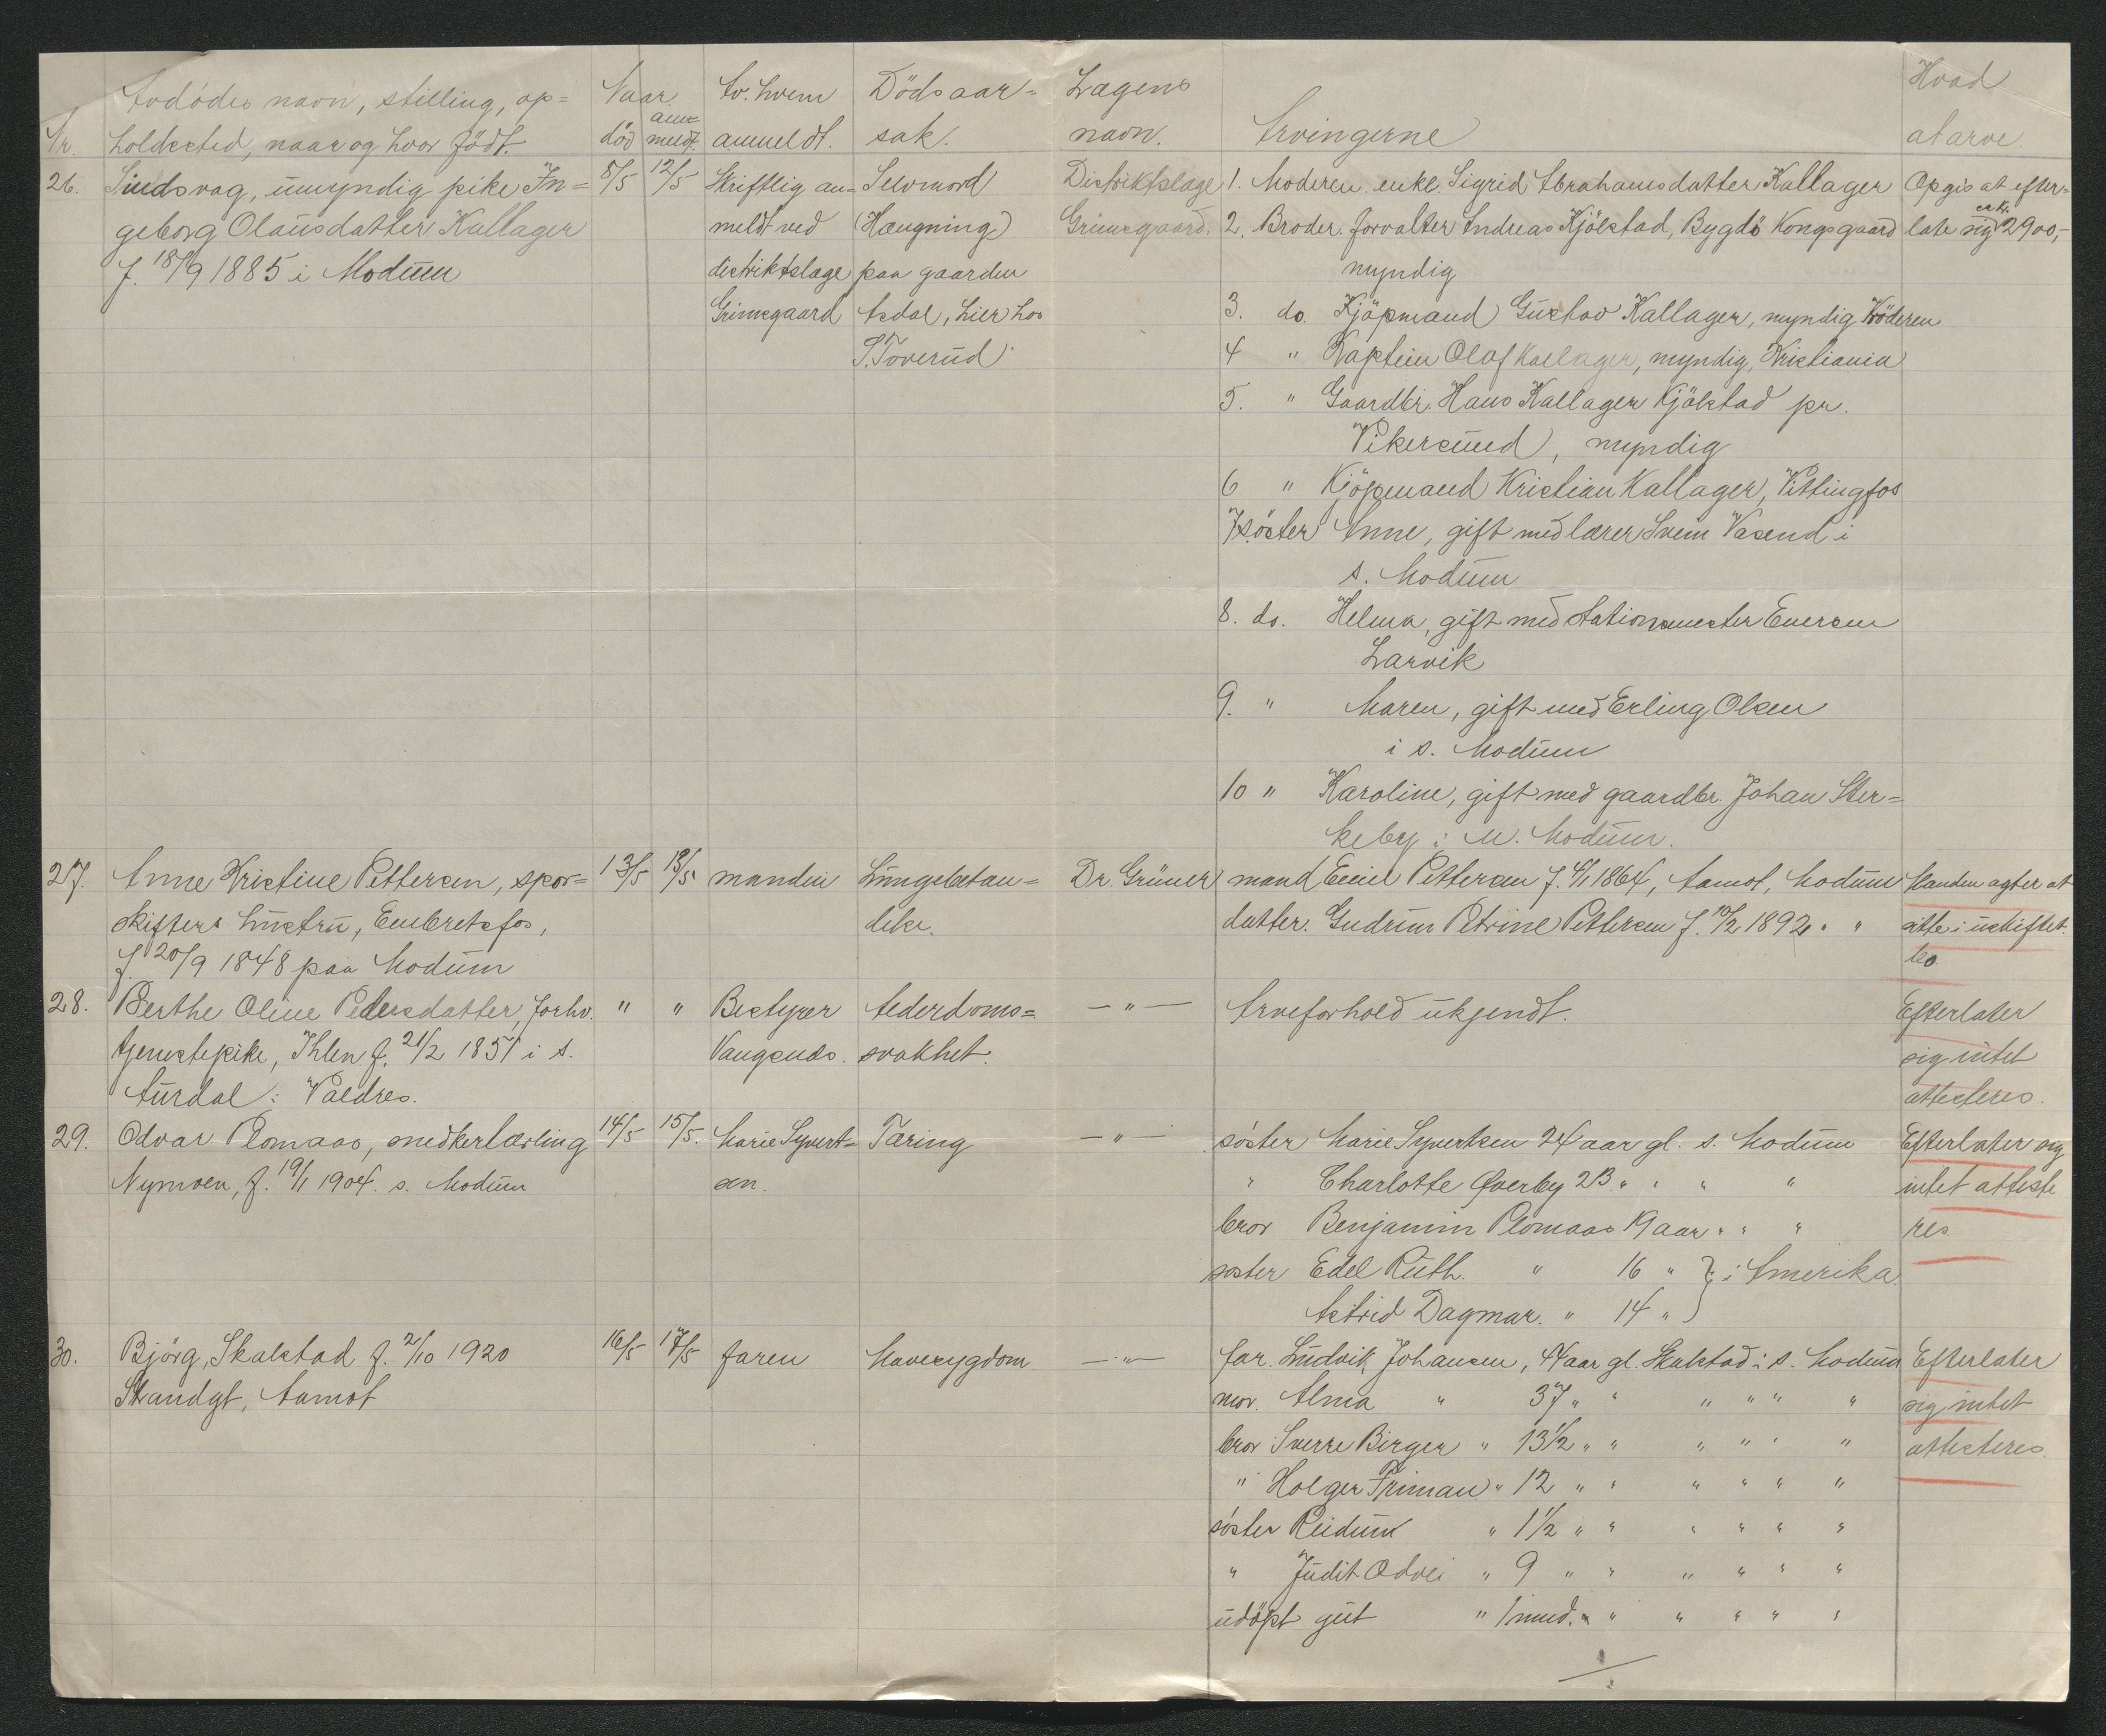 Avdödes navn, stilling, op= Naar Av. hvem Dödsaar= Lægens Hvad
Nr. holdssted, naar og hvor födt. död anmeldt. anmeldt. sak. navn. Arvingerne at arve.
26. Sindsvag, umyndig pike In= 8/5 12/5 Skriftlig an= Selvmord Distriktslæge 1. Moderen enke Sigrid Abrahamsdatter Kallager Opgis at efter=
geborg Olausdatter Kallager meldt ved (Hængning) Grimsgaard. 2. Broder. forvalter Andreas Kjölstad, Bygdö Kongsgaard late sig ca. kr. 2900,-
f. 18/9 1885 i Modum distriktslæge paa gaarden myndig
Grimsgaard Asdal, Lier hos 3. do. Kjöpmand Gustav Kallager, myndig Kröderen
T. Toverud. 4 " Kaptein Olaf Kallager, myndig, Kristiania
5. " Gaardbr. Hans Kallager Kjölstad pr.
Vikersund, myndig
6 " Kjöpmand Kristian Kallager, Vittingfos
7 söster Anne, gift med lærer Svein Vasend i
s. Modum
8. do. Helma, gift med Stationsmester Enersen
Larvik
9. " Maren, gift med Erling Olsen
i s. Modum
10 " Karoline, gift med gaardbr. Johan Ster=
keby i N. Modum.
27. Anne Kristine Pettersen, spor= 13/5 13/5 manden Lungebetæn= Dr. Grüner mand Emil Pettersen f. 4/1 1864, Aamot, Modum Manden agter at
skifters hustru, Embretsfos, delse. datter. Gudrun Petrine Pettersen f. 10/2 1892 " " sitte i uskiftet
f. 20/9 1848 paa Modum bo.
28. Berthe Oline Pedersdatter, forhv. " " Bestyrer Alderdoms= — " — Arveforhold ukjendt. Efterlater
tjenestepike, Ihlen f. 21/2 1851 i s. Vangsnes. svakhet. sig intet
Aurdal i Valdres. attesteres.
29. Odvar Plomaas, snedkerlærling 14/5 15/5. Marie Syvert= Tæring — " — söster Marie Syvertsen 24 aar gl. s. Modum Efterlater sig
Nymoen, f. 19/1 1904. s. Modum sen. " Charlotte Øverby 23 " " " " intet atteste
bror Benjamin Plomaas 19 aar " " " res.
söster Edel Ruth. " 16 " } i Amerika.
Astrid Dagmar. " 14 "
30. Björg, Skalstad f. 2/10 1920 16/5 17/5 faren Mavesygdom — " — far. Ludvik Johansen, 41 aar gl. Skalstad i s. Modum Efterlater
Strandgt, Aamot mor. Alma " 37 " " " " " " sig intet
bror Sverre Birger " 13 1/2 " " " " " " attesteres.
" Holger Friman " 12 " " " " " "
söster Reidun " 1 1/2 " " " " " "
" Judit Odvei " 9 " " " " " "
udöpt gut " 1 mnd. " " " " " "